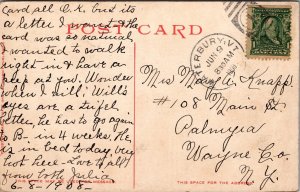 Card all O.K. but its
a letter I want & the
card was so natural
I wanted to walk
right in & have a
peep at you. Wonder
when I will; Will's
eyes are a trifle
better, he has to go again
to B- in 4 weeks. He
is in bed today very
hot here - Love of all
from both Julia
6-8-1908-
POST CARD
ERBURY, VT.
JUN 9
8 30 AM
Miss Mary A. Knapp
#108 Main St
Palmyra
Wayne Co.
N.Y.
THIS SPACE FOR THE ADDRESS